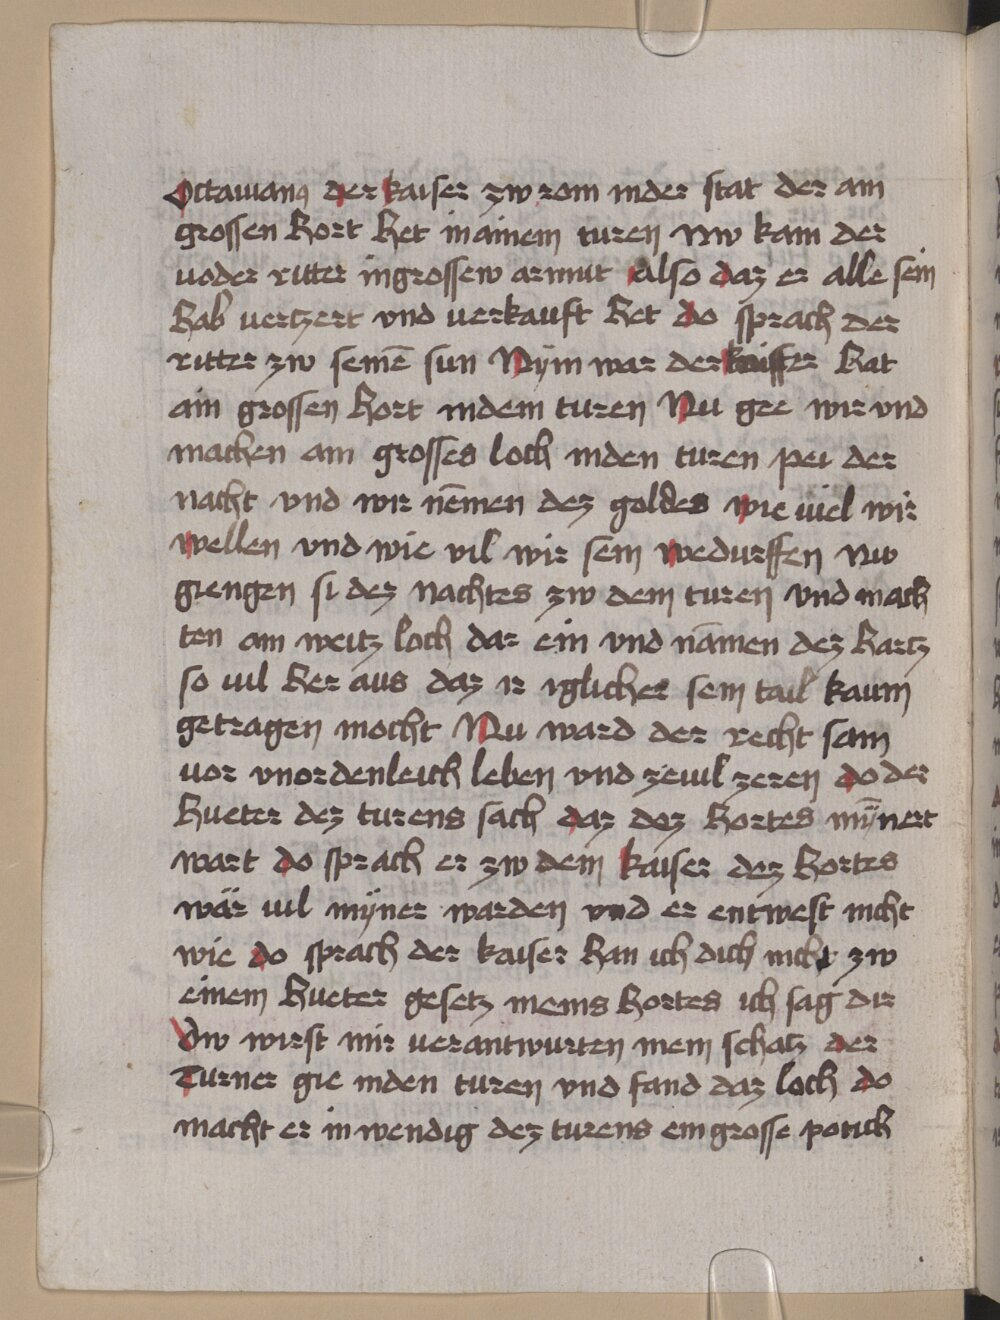 Octauianus der kaiser zw rom inder stat der ain
grossen hort het in ainem turen Nw kam der
voder ritter in grossew armut also daz er alle sein
hab verczert vnd verkauft het do sprach der
ritter zw seinē sun Nym war der kaisser hat
ain grossen hort indem turen Nu gee wir vnd
machen ain grosses loch inden turen pei der
nacht vnd wir nēmen dez goldes wie viel wir
wellen vnd wie vil wir sein wedurffen Nw
giengen si dez nachtes zw dem turen vnd mach
ten ain weitz loch dar ein vnd nāmen dez hartz
so vil her aus daz ir iglicher sein tail kaum
getragen mocht Nu ward der recht sam
vor vnordenleich leben vnd ze vil zeren do der
hueter dez turens sach daz doz hortes mȳnert
wart do sprach er zw dem kaiser dez hortes
wär vil mÿner warden vnd er entwest nicht
wie do sprach der kaiser han ich dich nicht zw
einem hueter gesetz meins hortes ich sag dir
Dw wirst mir verantwurten mein schatz der
Turner gie inden turen vnd fand daz loch do
macht er inwendig dez turens ein grosse potich